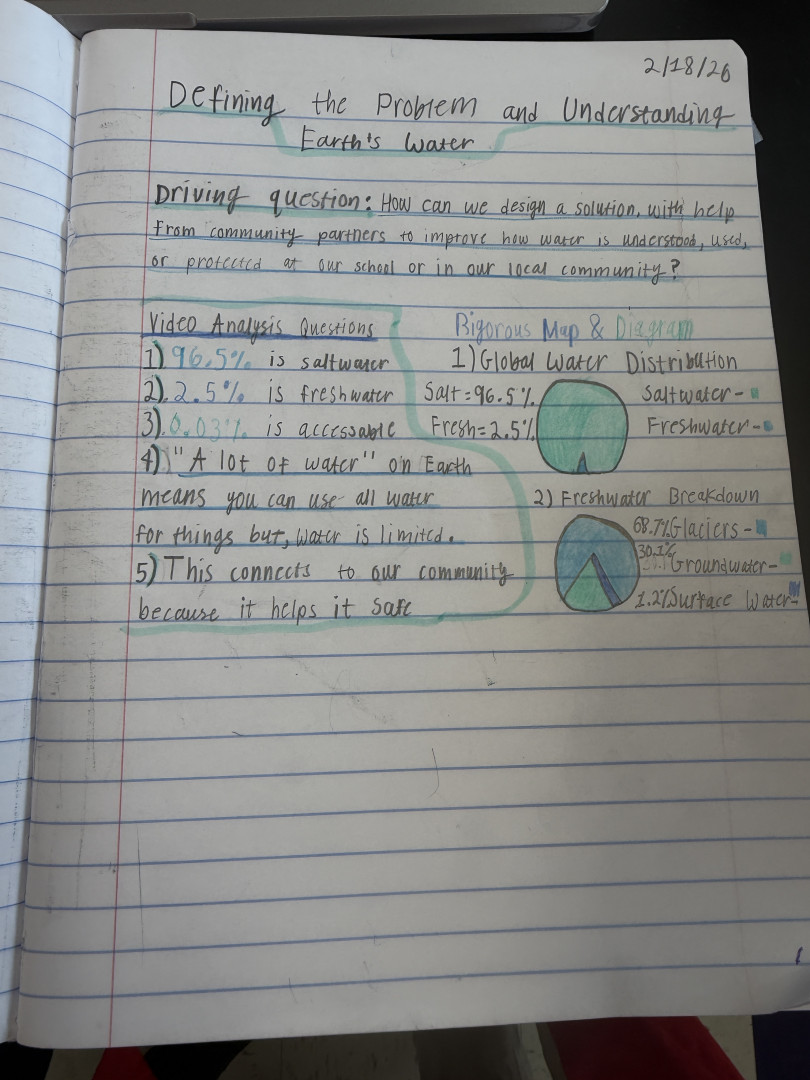 2/18/26
Defining the Problem and Understanding
Earth's Water
Driving question: How can we design a solution, with help
from community partners to improve how water is understood, used,
or protected at our school or in our local community?
Video Analysis Questions
1) 96.5% is saltwater
2). 2.5% is freshwater
3). 0.03% is accessable
4) "A lot of water" on Earth
means you can use all water
for things but, water is limited.
5) This connects to our community
because it helps it safe
Rigorous Map & Diagram
1) Global Water Distribution
Salt = 96.5%
Fresh = 2.5%
Saltwater -
Freshwater -
2) Freshwater Breakdown
68.7% Glaciers -
30.1%
Groundwater -
1.2% Surface Water -